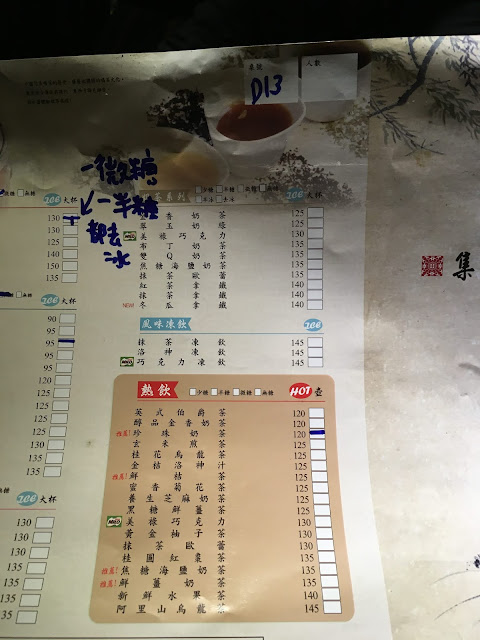 桌號
人數
D13
一微糖
一半糖
都去
冰
糖 無糖
茶系列 少糖 半糖 微糖 無糖
少冰 去冰
ICE 大杯
ICE 大杯
130
130
125
140
150
135
金香奶茶 125
翠玉奶綠 125
MILO 美祿巧克力 130
布丁奶茶
雙Q奶茶
焦糖海鹽奶茶
抹茶歐蕾
紅茶拿鐵 140
抹茶拿鐵 140
NEW 冬瓜拿鐵 140
風味凍飲 ICE
抹茶凍飲 145
洛神凍飲 145
MILO 巧克力凍飲 145
ICE 大杯
90
95
95
95
120
120
125
125
125
125
130
135
135
熱飲 少糖 半糖 微糖 無糖 HOT 壺
英式伯爵茶 120
醇品金香奶茶 120
推薦! 珍珠奶茶 120
玄米煎茶 125
桂花烏龍茶 125
金桔洛神汁 125
推薦! 鮮桔茶 125
蜜香菊花茶 125
養生芝麻奶茶 125
黑糖鮮薑茶 125
MILO 美祿巧克力 130
黃金柚子茶 130
抹茶歐蕾 130
桂圓紅棗茶 135
推薦! 焦糖海鹽奶茶 135
推薦! 鮮薑奶茶 135
新鮮水果茶 140
阿里山烏龍茶 145
糖 無糖
ICE 大杯
130
130
130
135
135
135
135
145
集